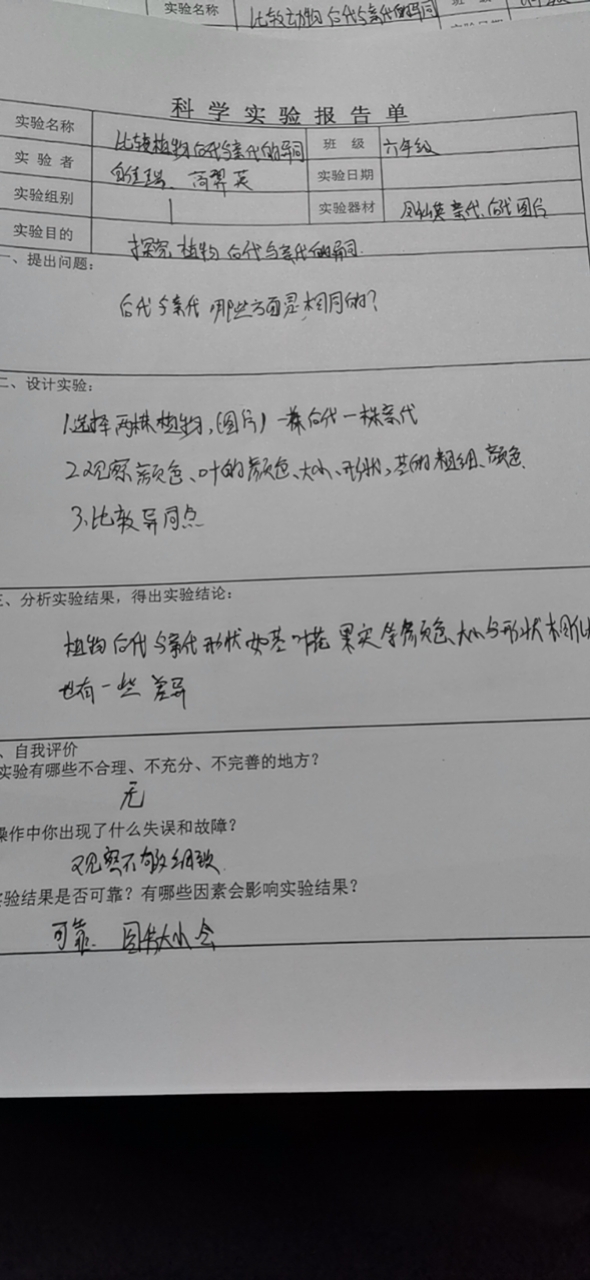 实验名称 比较动物后代与亲代的异同
科学实验报告单
实验名称 比较植物后代与亲代的异同 班级 六年级
实验者 实验日期
实验组别 1 实验器材 亲代、后代图片
实验目的 探究植物后代与亲代的异同.
一、提出问题:
后代与亲代哪些方面是相同的?
二、设计实验:
1.选择两株植物,(图片)一株后代一株亲代
2.观察颜色、叶的颜色、大小、形状,茎的粗细、颜色.
3.比较异同点
三、分析实验结果,得出实验结论:
植物后代与亲代形状如茎叶花果实等颜色、大小与形状相似
也有一些差异
、自我评价
实验有哪些不合理、不充分、不完善的地方?
无
操作中你出现了什么失误和故障?
观察不够细致.
实验结果是否可靠?有哪些因素会影响实验结果?
可靠. 图片大小会